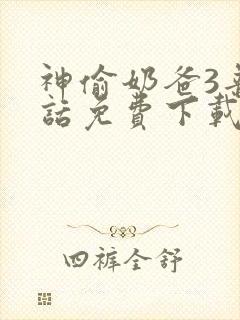 神偷奶爸3
話免費下載
四裤全舒